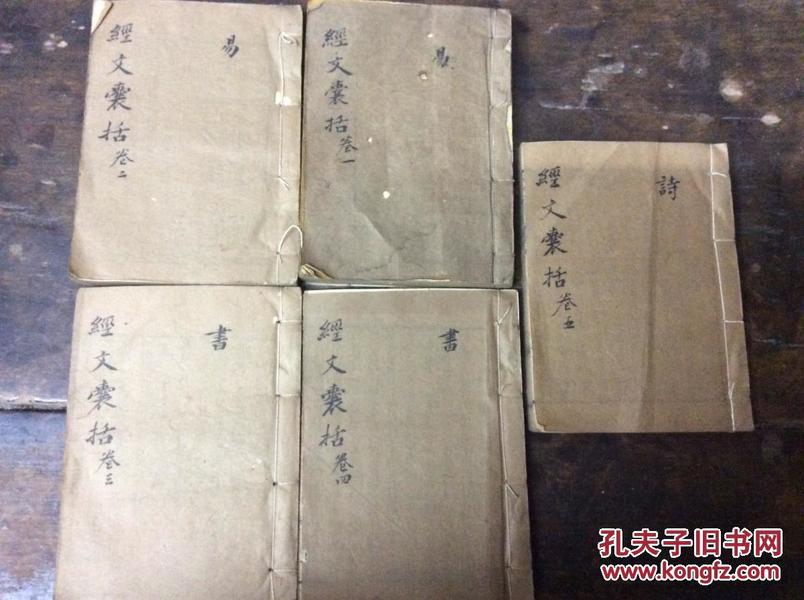 易
經文囊括卷二
易
經文囊括卷一
詩
經文囊括卷五
書
經文囊括卷三
書
經文囊括卷四
孔夫子旧书网
www.kongfz.com